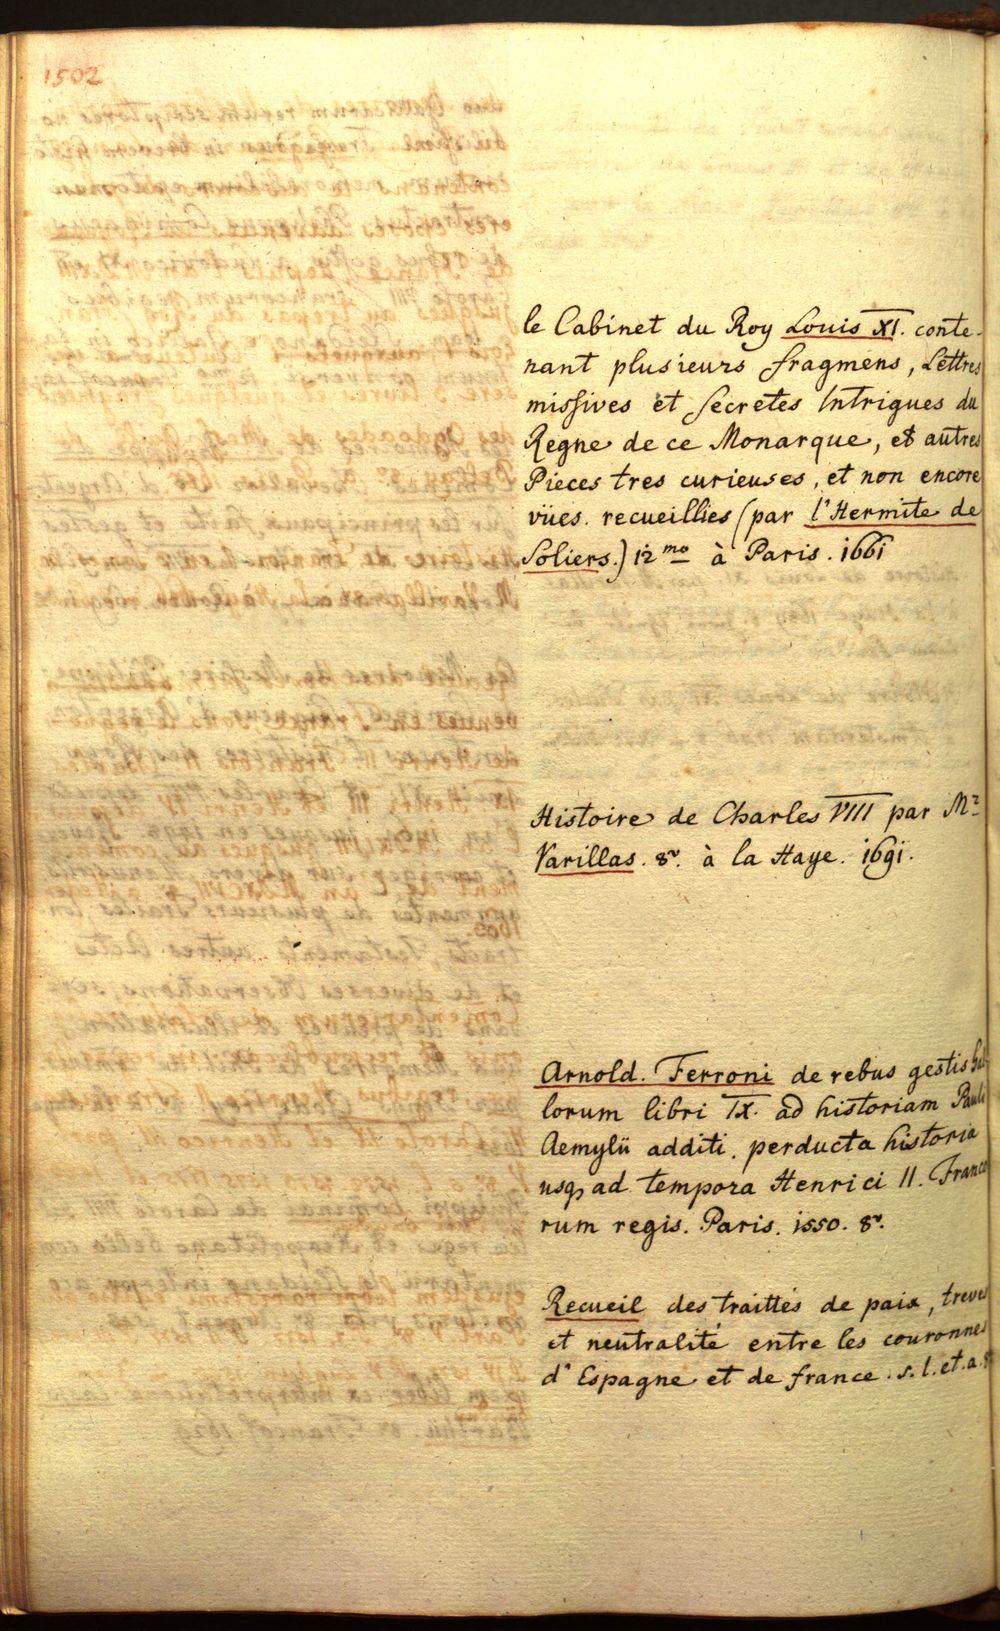 1502
le Cabinet du Roy Louis XI. conte-
nant plusieurs fragmens, Lettres
missives et secretes Intrigues du
Regne de ce Monarque, et autres
Pieces tres curieuses, et non encore
vües. recueillies (par l'Hermite de
Soliers.) 12mo à Paris. 1661
Histoire de Charles VIII par Mr
Varillas. 8v. à la Haye. 1691.
Arnold. Ferroni de rebus gestis Gal
lorum libri IX. ad historiam Pauli
Aemylii additi. perducta historia
usq ad tempora Henrici II. Franco
rum regis. Paris. 1550. 8v.
Recueil des traittés de paix, treves
et neutralité entre les couronnes
d'Espagne et de france. s.l. et. a.